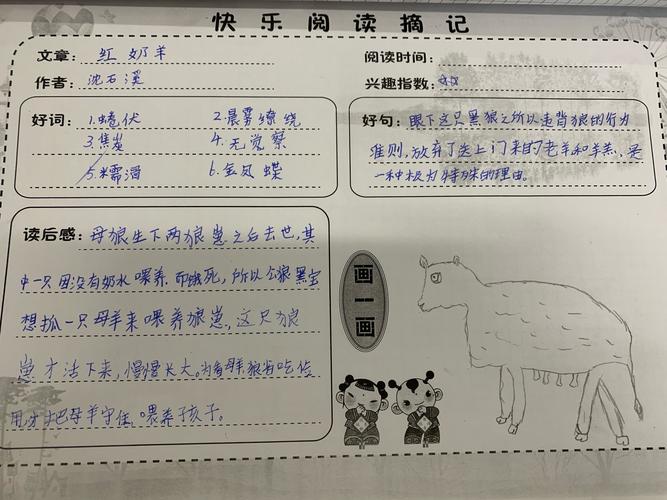 快乐阅读摘记
文章：红奶羊
阅读时间：
作者：沈石溪
兴趣指数：
好词：1.蜷伏 2.晨雾缭绕
3.焦炭 4.无觉察
5.濡湿 6.金凤蝶
好句：眼下这只黑狼之所以违背狼的行为
准则，放弃了送上门来的老羊和羊羔，是
一种极为特殊的理由。
读后感：母狼生下两狼崽之后去世，其
中一只因没有奶水喂养而饿死，所以公狼黑宝
想抓一只母羊来喂养狼崽，这只狼
崽才活下来，慢慢长大。
用才把母羊守住，喂养子孩子。
画一画